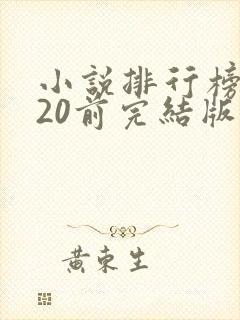 小說排行榜
20前完結版
黃東生